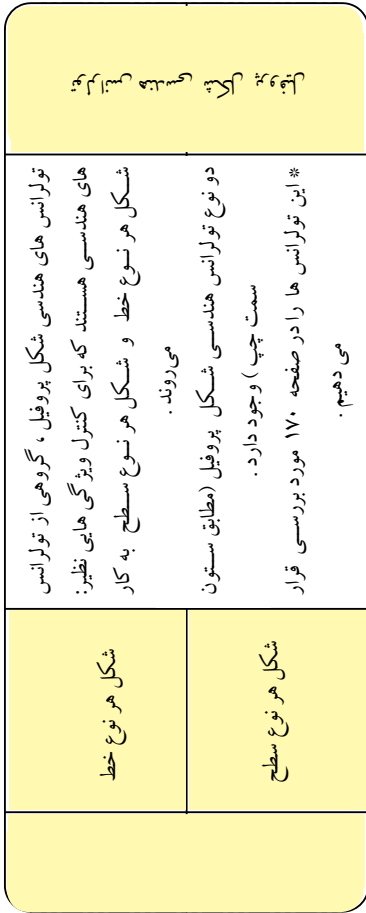 تولرانس هندسی شکل پروفیل
تولرانس های هندسی شکل پروفیل ، گروهی از تولرانس
های هندسـی هسـتند که برای کنترل ویژگی هایی نظیر:
شـکل هر نـوع خط و شـکل هر نـوع سـطح به کار
می‌روند .
دو نوع تولرانس هندسـی شـکل پروفیل (مطابق سـتون
سمت چپ) وجود دارد .
* این تولرانس ها را در صفحه ۱۷۰ مورد بررسـی قرار
می دهیم .
شکل هر نوع خط
شکل هر نوع سطح